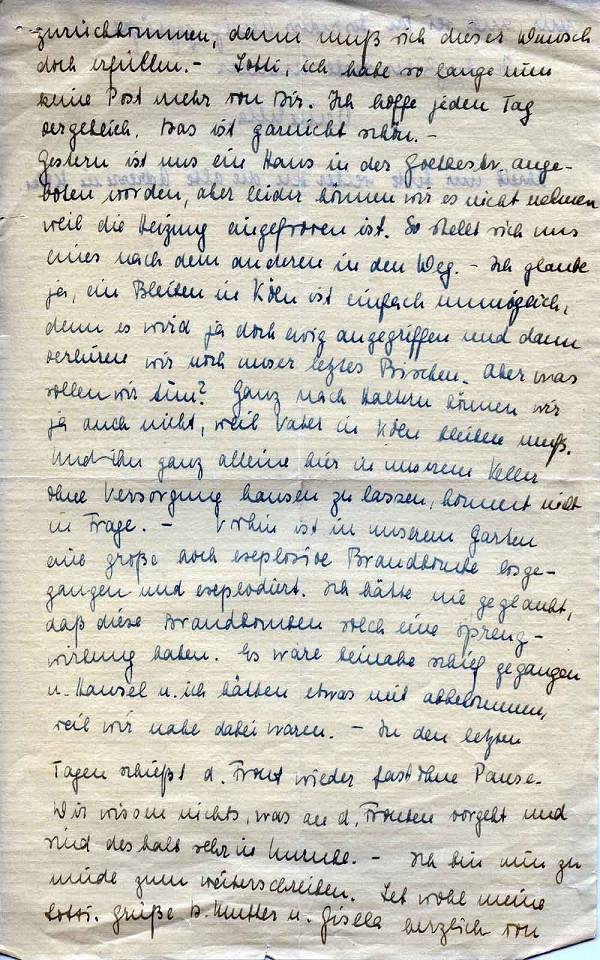 zurückkommen, dann muß sich dieser Wunsch
doch erfüllen. - Lotti, ich habe so lange nun
keine Post mehr von Dir. Ich hoffe jeden Tag
vergeblich, Das ist garnicht schön. -
Gestern ist uns ein Haus in der Goethestr. ange-
boten worden, aber leider können wir es nicht nehmen
weil die Heizung eingefroren ist. So stellt sich uns
eines nach dem anderen in den Weg. - Ich glaube
ja, ein Bleiben in Köln ist einfach unmöglich,
denn es wird ja doch ewig angegriffen und dann
verlieren wir noch unser letztes Bischen. Aber was
sollen wir tun? Ganz nach Haltern können wir
ja auch nicht, weil Vater in Köln bleiben muß.
Und ihn ganz alleine hier in unserem Keller
ohne Versorgung hausen zu lassen, kommt nicht
in Frage. - Vorhin ist in unserem Garten
eine große hoch explosive Brandbombe losge-
gangen und explodiert. Ich hätte nie geglaubt,
daß diese Brandbomben solch eine Spreng-
wirkung haben. Es wäre beinahe schief gegangen
u. Hansel u. ich hätten etwas mit abbekommen,
weil wir nahe dabei waren. - In den letzten
Tagen schießt d. Front wieder fast ohne Pause.
Wir wissen nichts, was an d. Fronten vorgeht und
sind deshalb sehr in Unruhe. - Ich bin nun zu
müde zum weiterschreiben. Leb wohl meine
Lotti. Grüße D. Mutter u. Gisela herzlich von